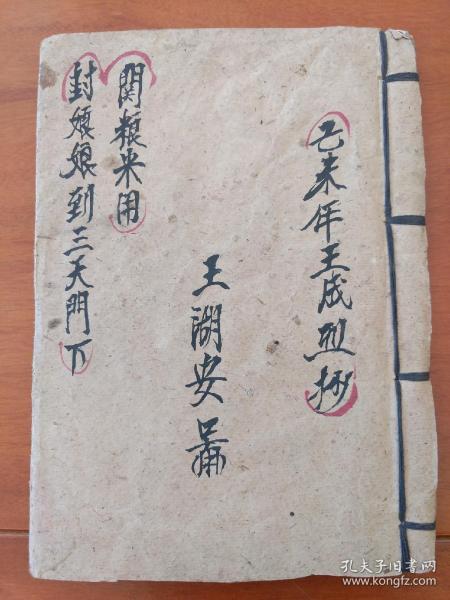 乙未年王成烈抄
王湖安
関粮来用
封娘娘到三天門下
孔夫子旧书网
www.kongfz.com